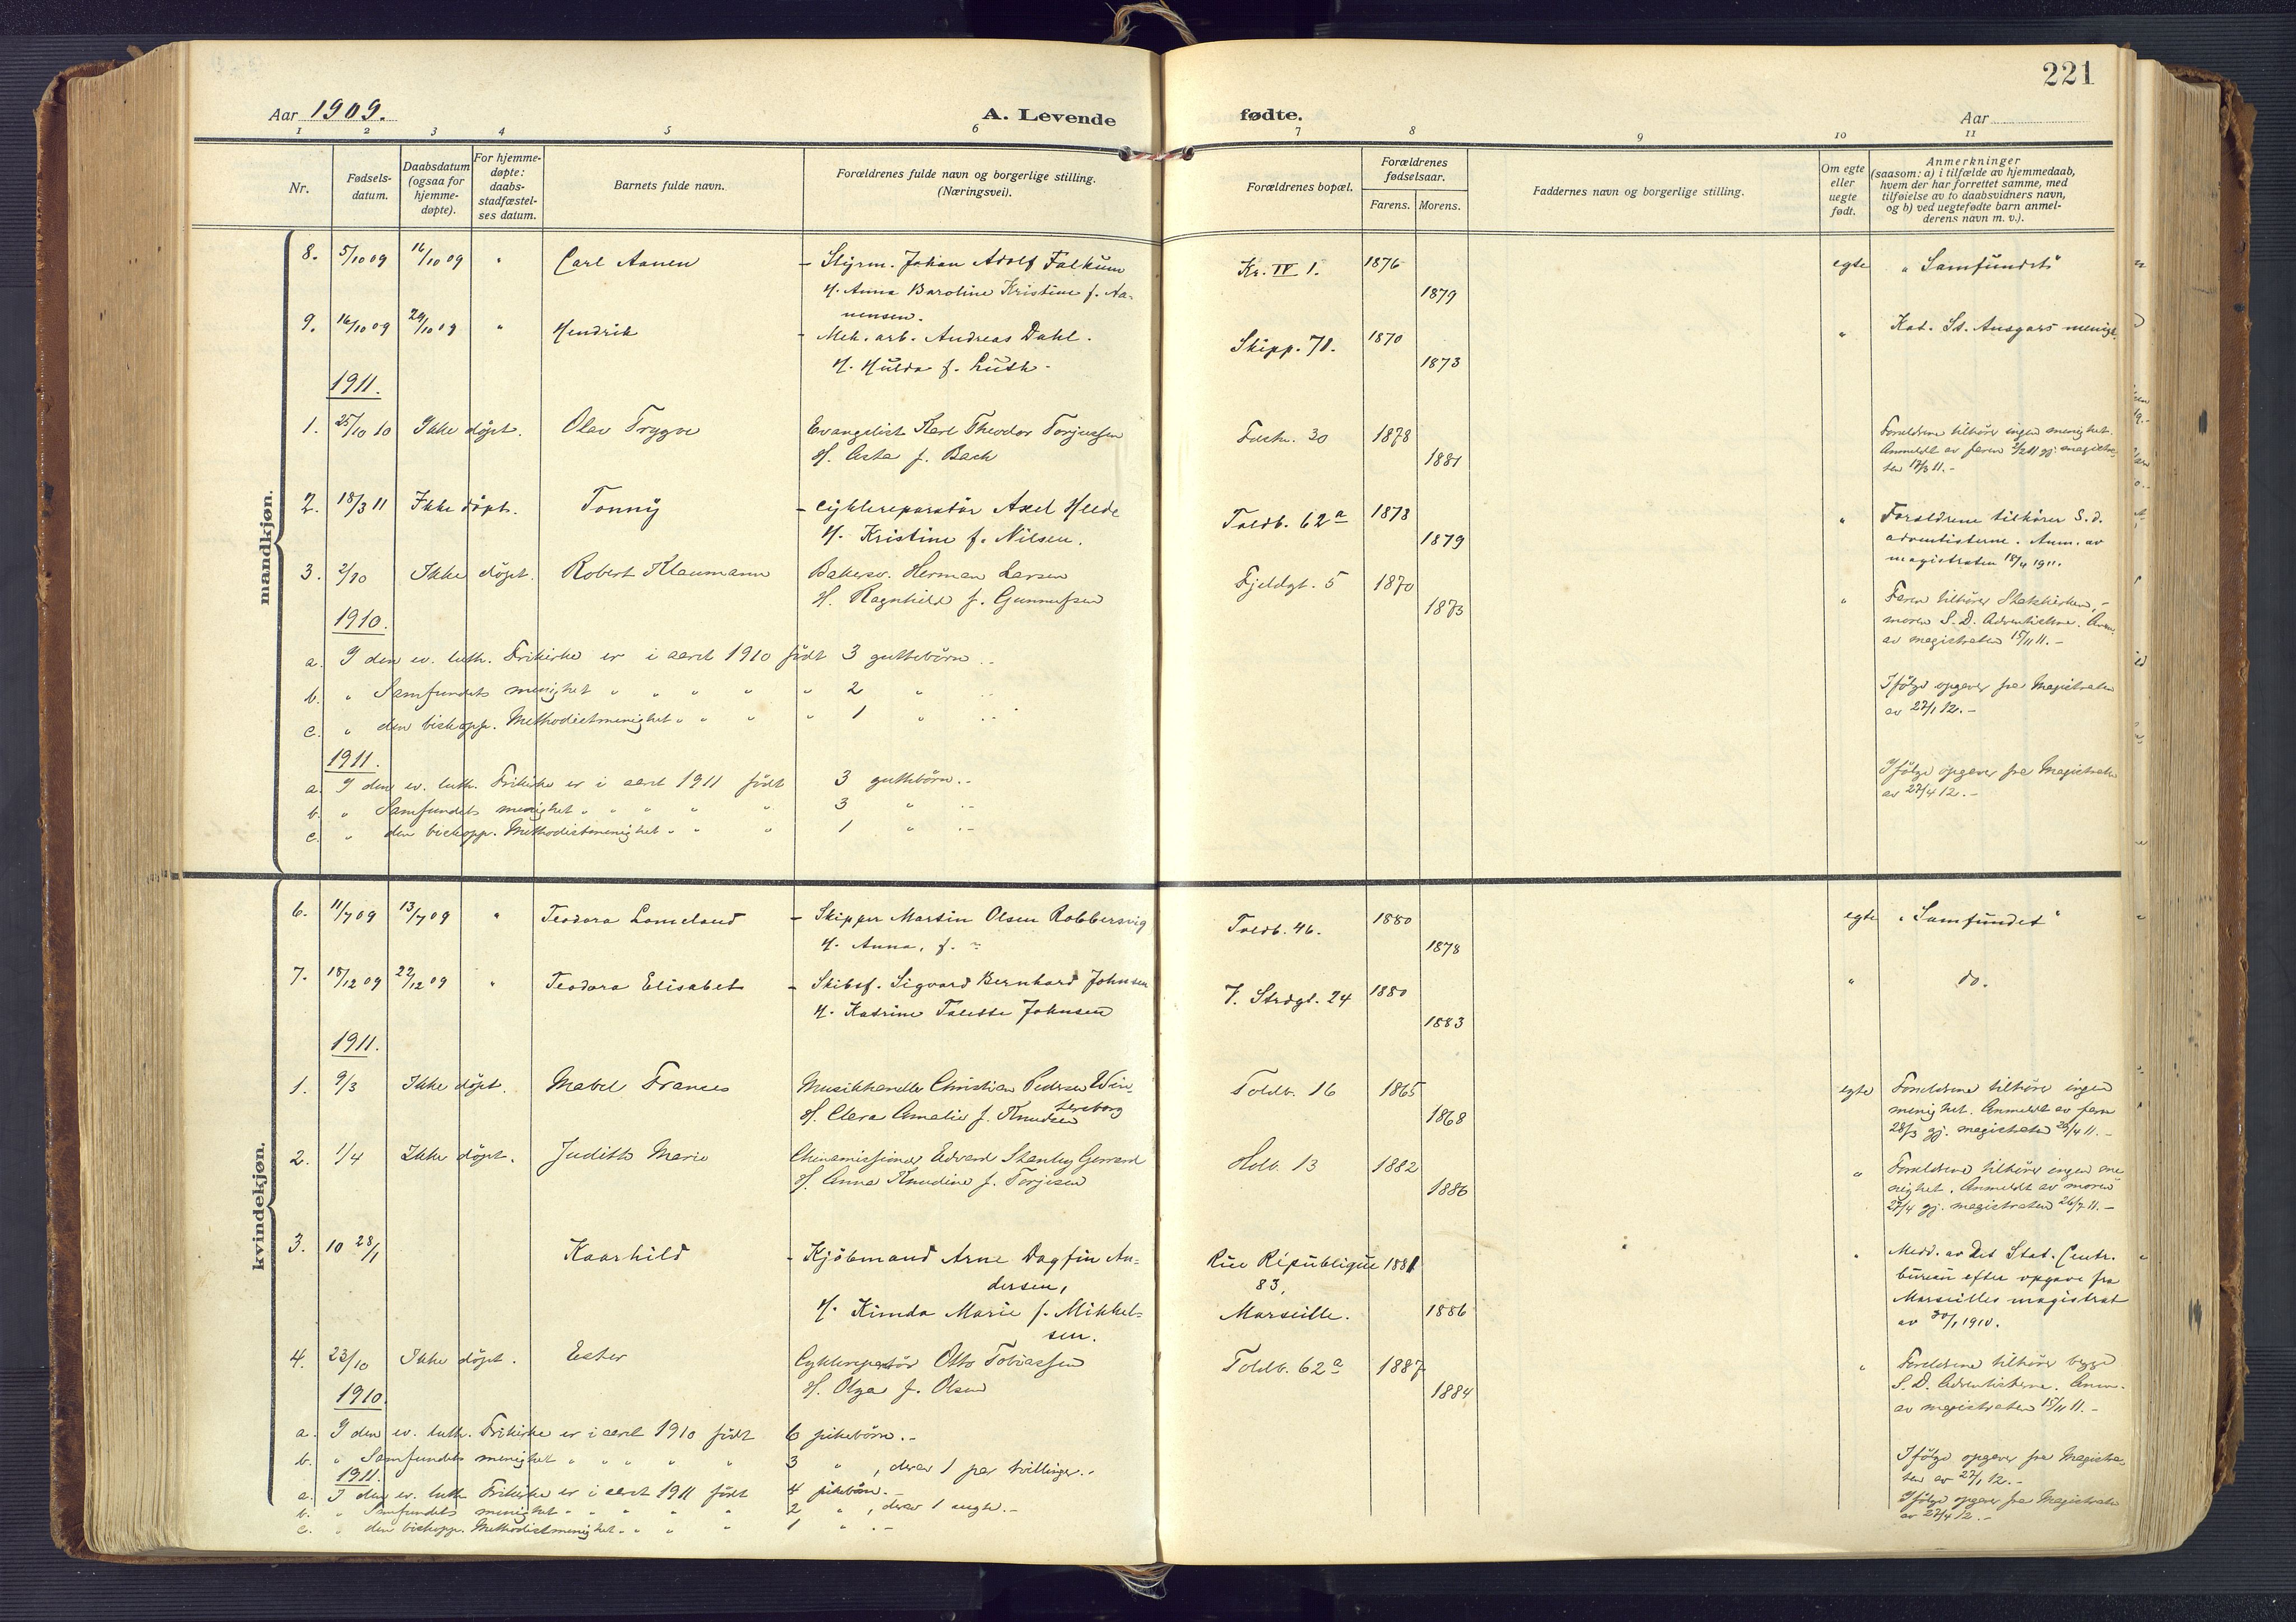 221
Aar 1909.
A. Levende
fødte.
Aar
1 2 3 4 5 6 7 8 9 10 11
Nr.
Fødsels-
datum.
Daabsdatum
(ogsaa for
hjemme-
døpte).
For hjemme-
døpte:
daabs-
stadfæstel-
ses datum.
Barnets fulde navn.
Forældrenes fulde navn og borgerlige stilling.
(Næringsvei).
Forældrenes bopæl.
Forældrenes
fødselsaar.
Farens. Morens.
Faddernes navn og borgerlige stilling.
Om egte
eller
uegte
født.
Anmerkninger
(saasom: a) i tilfælde av hjemmedaab,
hvem der har forrettet samme, med
tilføielse av to daabsvidners navn,
og b) ved uegtefødte barn anmel-
derens navn m. v.).
mandkjøn.
8. 5/10 09 16/10 09 " Carl Aanen - Styrm. Johan Adolf Falkum Kr. IV 1. 1876 egte "Samfundet"
H. Anna Baroline Kristine f. Aa- 1879
nensen.
9. 16/10 09 24/10 09 " Hendrik - Mek. arb. Andreas Dahl. Skipp. 71. 1870 " Kat. St. Ansgars menigh.
H. Hulda f. Luth. 1873
1911.
1. 25/10 10 Ikke døpt. Olav Trygve Evangelist Karl Theodor Torjussen 30 1878 Forældrene tilhører ingen menighet.
H. Asta f. Bach 1881 Anmeldt av faren 2/2 11 gj. magistra-
ten 17/3 11.-
2. 18/3 11 Ikke døpt. Tonny - Cyklereparatør Axel Heede Toldb. 62a 1878 " Forældrene tilhører S. d.
H. Kristine f. Nilsen. 1879 adventisterne. Anm. av
magistraten 18/4 1911.
3. 2/10 Ikke døpt. Robert Klaumann Bakersv. Herman Larsen Fjeldgt. 5 1870 " Faren tilhører Statskirken,-
H. Ragnhild f. Gunnufsen 1873 moren S. D. Adventistene. Anm.
av magistraten 15/11 11.-
1910.
a. I den ev. luth. Frikirke er i aaret 1910 født 3 guttebørn.. Ifølge opgaver fra Magistraten
b. " Samfundets menighet " " " " " 2 " .. av 27/1 12.-
c. " den biskopp. Methodistmenighet " " " " 1 " ..
1911.
a. I den ev. luth. Frikirke er i aaret 1911 født 3 guttebørn.. Ifølge opgaver fra Magistraten
b. " Samfundets menighet " " " " " 3 " .. av 27/4 12.-
c. " den biskopp. Methodistmenighet " " " 1 " ..
kvindekjøn.
6. 11/7 09 13/7 09 " Teodora Lomeland - Skipper Martin Olsen Robbersvig Toldb. 46. 1880 egte "Samfundet"
H. Anna, f. ~ 1878
7. 18/12 09 22/12 09 " Teodora Elisabet - Skibsf. Sigvard Bernhard Johnsen V. Strdgt. 24 1880 " do.
H. Katrine Talette Johnsen 1883
1911.
1. 9/3 Ikke døpt. Mabel Frances Musikhandler Christian Pedersen Win- Toldb. 16 1865 egte Forældrene tilhører ingen
H. Clara Amalie f. Knudsen 1868 menighet. Anmeldt av faren
28/3 gj. magistraten 29/4 11.-
2. 1/4 Ikke døpt. Judith Marie Chinamissionær Edvard Stanley Gerrard Holb. 13 1882 " Forældrene tilhører ingen me-
H. Anna Knudine f. Torjesen 1886 nighet. Anmeldt av moren
27/4 gj. magistraten 26/7 11.-
3. 10 28/1 Kaarhild - Kjøbmand Arne Dagfin An- Rue République 1881 " Medd. av det Stat. Centr.
dersen, 83, bureau efter opgave fra
H. Kimda Marie f. Mikkel- Marseille. 1886 Marseilles magistrat
sen. av 30/1 1910.
4. 23/10 Ikke døpt. Ester Cyklereparatør Otto Tobiassen Toldb. 62a 1887 " Forældrene tilhører begge
H. Olga f. Olsen 1884 S. D. Adventisterne. Anm.
av magistraten 15/11 11.-
1910.
a. I den ev. luth. Frikirke er i aaret 1910 født 6 pikebørn.-
b. " Samfundets menighet " " " " " 3 " , derav 1 par tvillinger.. Ifølge opgaver fra Magistra-
ten av 27/1 12.-
1911.
a. I den ev. luth. Frikirke er i aaret 1911 født 4 pikebørn.- Ifølge opgaver fra Magistraten
b. " Samfundets menighet " " " " " 2 " , derav 1 uegte.- av 27/4 12.-
c. " den biskopp. Methodistmenighet " " " 1 " .-